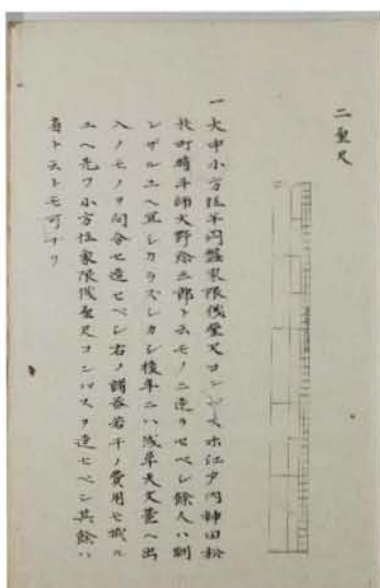 二量尺
一大中小方位半円盤象限儀量尺コンパス等江戸内神田松
枝町時斗師大野弥三郎ト云モノニ造ラセベシ餘人ハ馴
レザルユヘ宜シカラスシカシ後年ニハ浅草天文臺ヘ出
入ノモノヲ問合セ造セベシ右ノ諸器若干ノ費用モ掛ル
ユヘ先ツ小方位象限儀量尺コンパスヲ造セベシ其餘ハ
省トストモ可ナリ